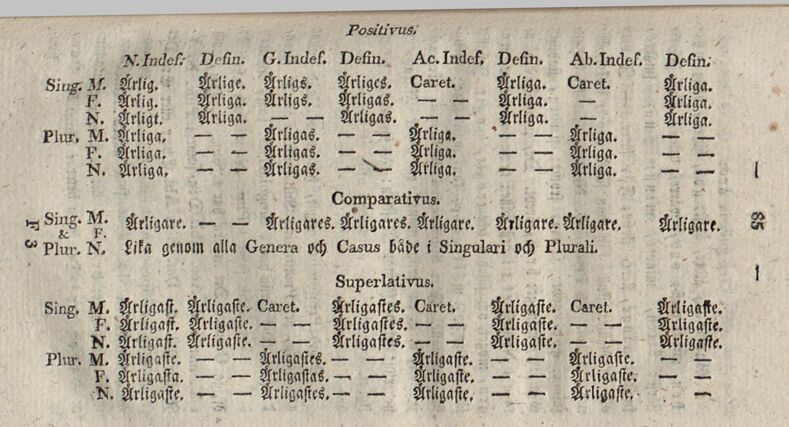 Positivus.
N. Indef. Defin. G. Indef. Defin. Ac. Indef. Defin. Ab. Indef. Defin.
Sing. M. Årlig. Årlige. Årligs. Årliges. Caret. Årliga. Caret. Årliga.
F. Årlig. Årliga. Årligs. Årligas. — — Årliga. — Årliga.
N. Årligt. Årliga. — — Årligas. — — Årliga. — Årliga.
Plur. M. Årliga. — — Årligas. — — Årliga. — — Årliga. — —
F. Årliga. — — Årligas. — — Årliga. — — Årliga. — —
N. Årliga. — — Årligas. — — Årliga. — — Årliga. — —
Comparativus.
Sing. M. Årligare. — — Årligares. Årligares. Årligare. Årligare. Årligare. Årligare.
& F.
Plur. N. Lika genom alla Genera och Casus både i Singulari och Plurali.
Superlativus.
Sing. M. Årligast. Årligaste. Caret. Årligastes. Caret. Årligaste. Caret. Årligaste.
F. Årligast. Årligaste. — — Årligastes. — — Årligaste. — — Årligaste.
N. Årligast. Årligaste. — — Årligastes. — — Årligaste. — — Årligaste.
Plur. M. Årligaste. — — Årligastes. — — Årligaste. — — Årligaste. — —
F. Årligasta. — — Årligastas. — — Årligaste. — — Årligaste. — —
N. Årligaste. — — Årligastes. — — Årligaste. — — Årligaste. —
F 3
— 85 —